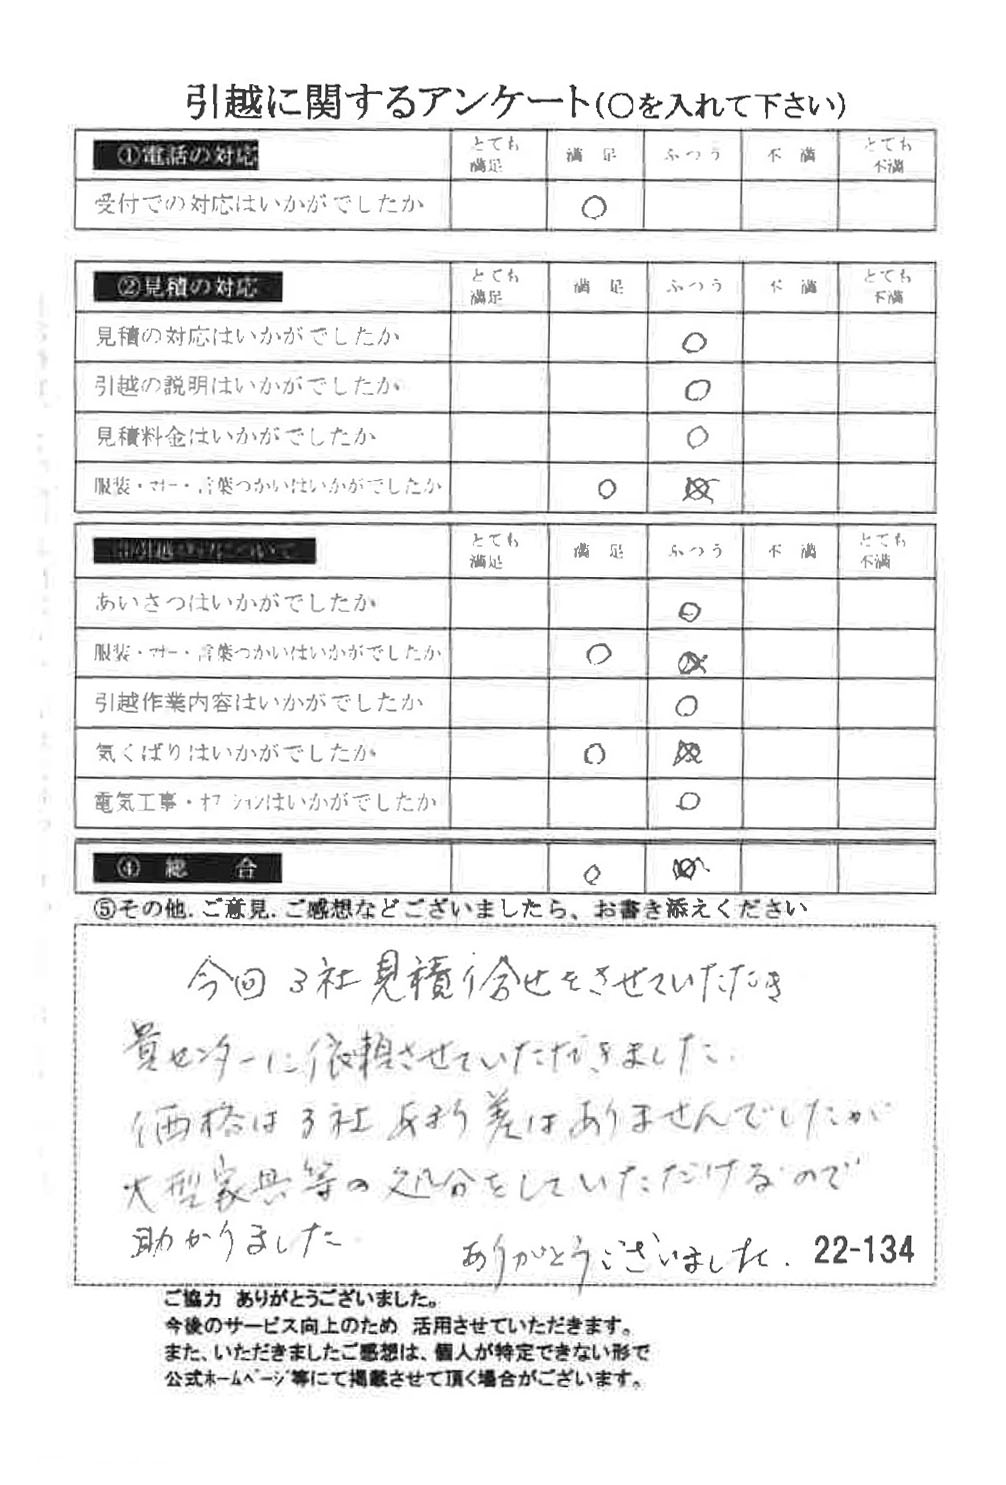 引越に関するアンケート(○を入れて下さい)
①電話の対応 とても満足 満 足 ふつう 不 満 とても不満
受付での対応はいかがでしたか ○
②見積の対応 とても満足 満 足 ふつう 不 満 とても不満
見積の対応はいかがでしたか ○
引越の説明はいかがでしたか ○
見積料金はいかがでしたか ○
服装・マナー・言葉つかいはいかがでしたか ○
とても満足 満 足 ふつう 不 満 とても不満
あいさつはいかがでしたか ○
服装・マナー・言葉つかいはいかがでしたか ○
引越作業内容はいかがでしたか ○
気くばりはいかがでしたか ○
電気工事・オプションはいかがでしたか ○
④ 総 合 ○
⑤その他.ご意見.ご感想などございましたら、お書き添えください
今回3社見積り合せをさせていただき
貴センターに依頼させていただきました.
価格は3社あまり差はありませんでしたが
大型家具等の処分をしていただけるので
助かりました
ありがとうございました.
22-134
ご協力 ありがとうございました。
今後のサービス向上のため 活用させていただきます。
また、いただきましたご感想は、個人が特定できない形で
公式ホームページ等にて掲載させて頂く場合がございます。